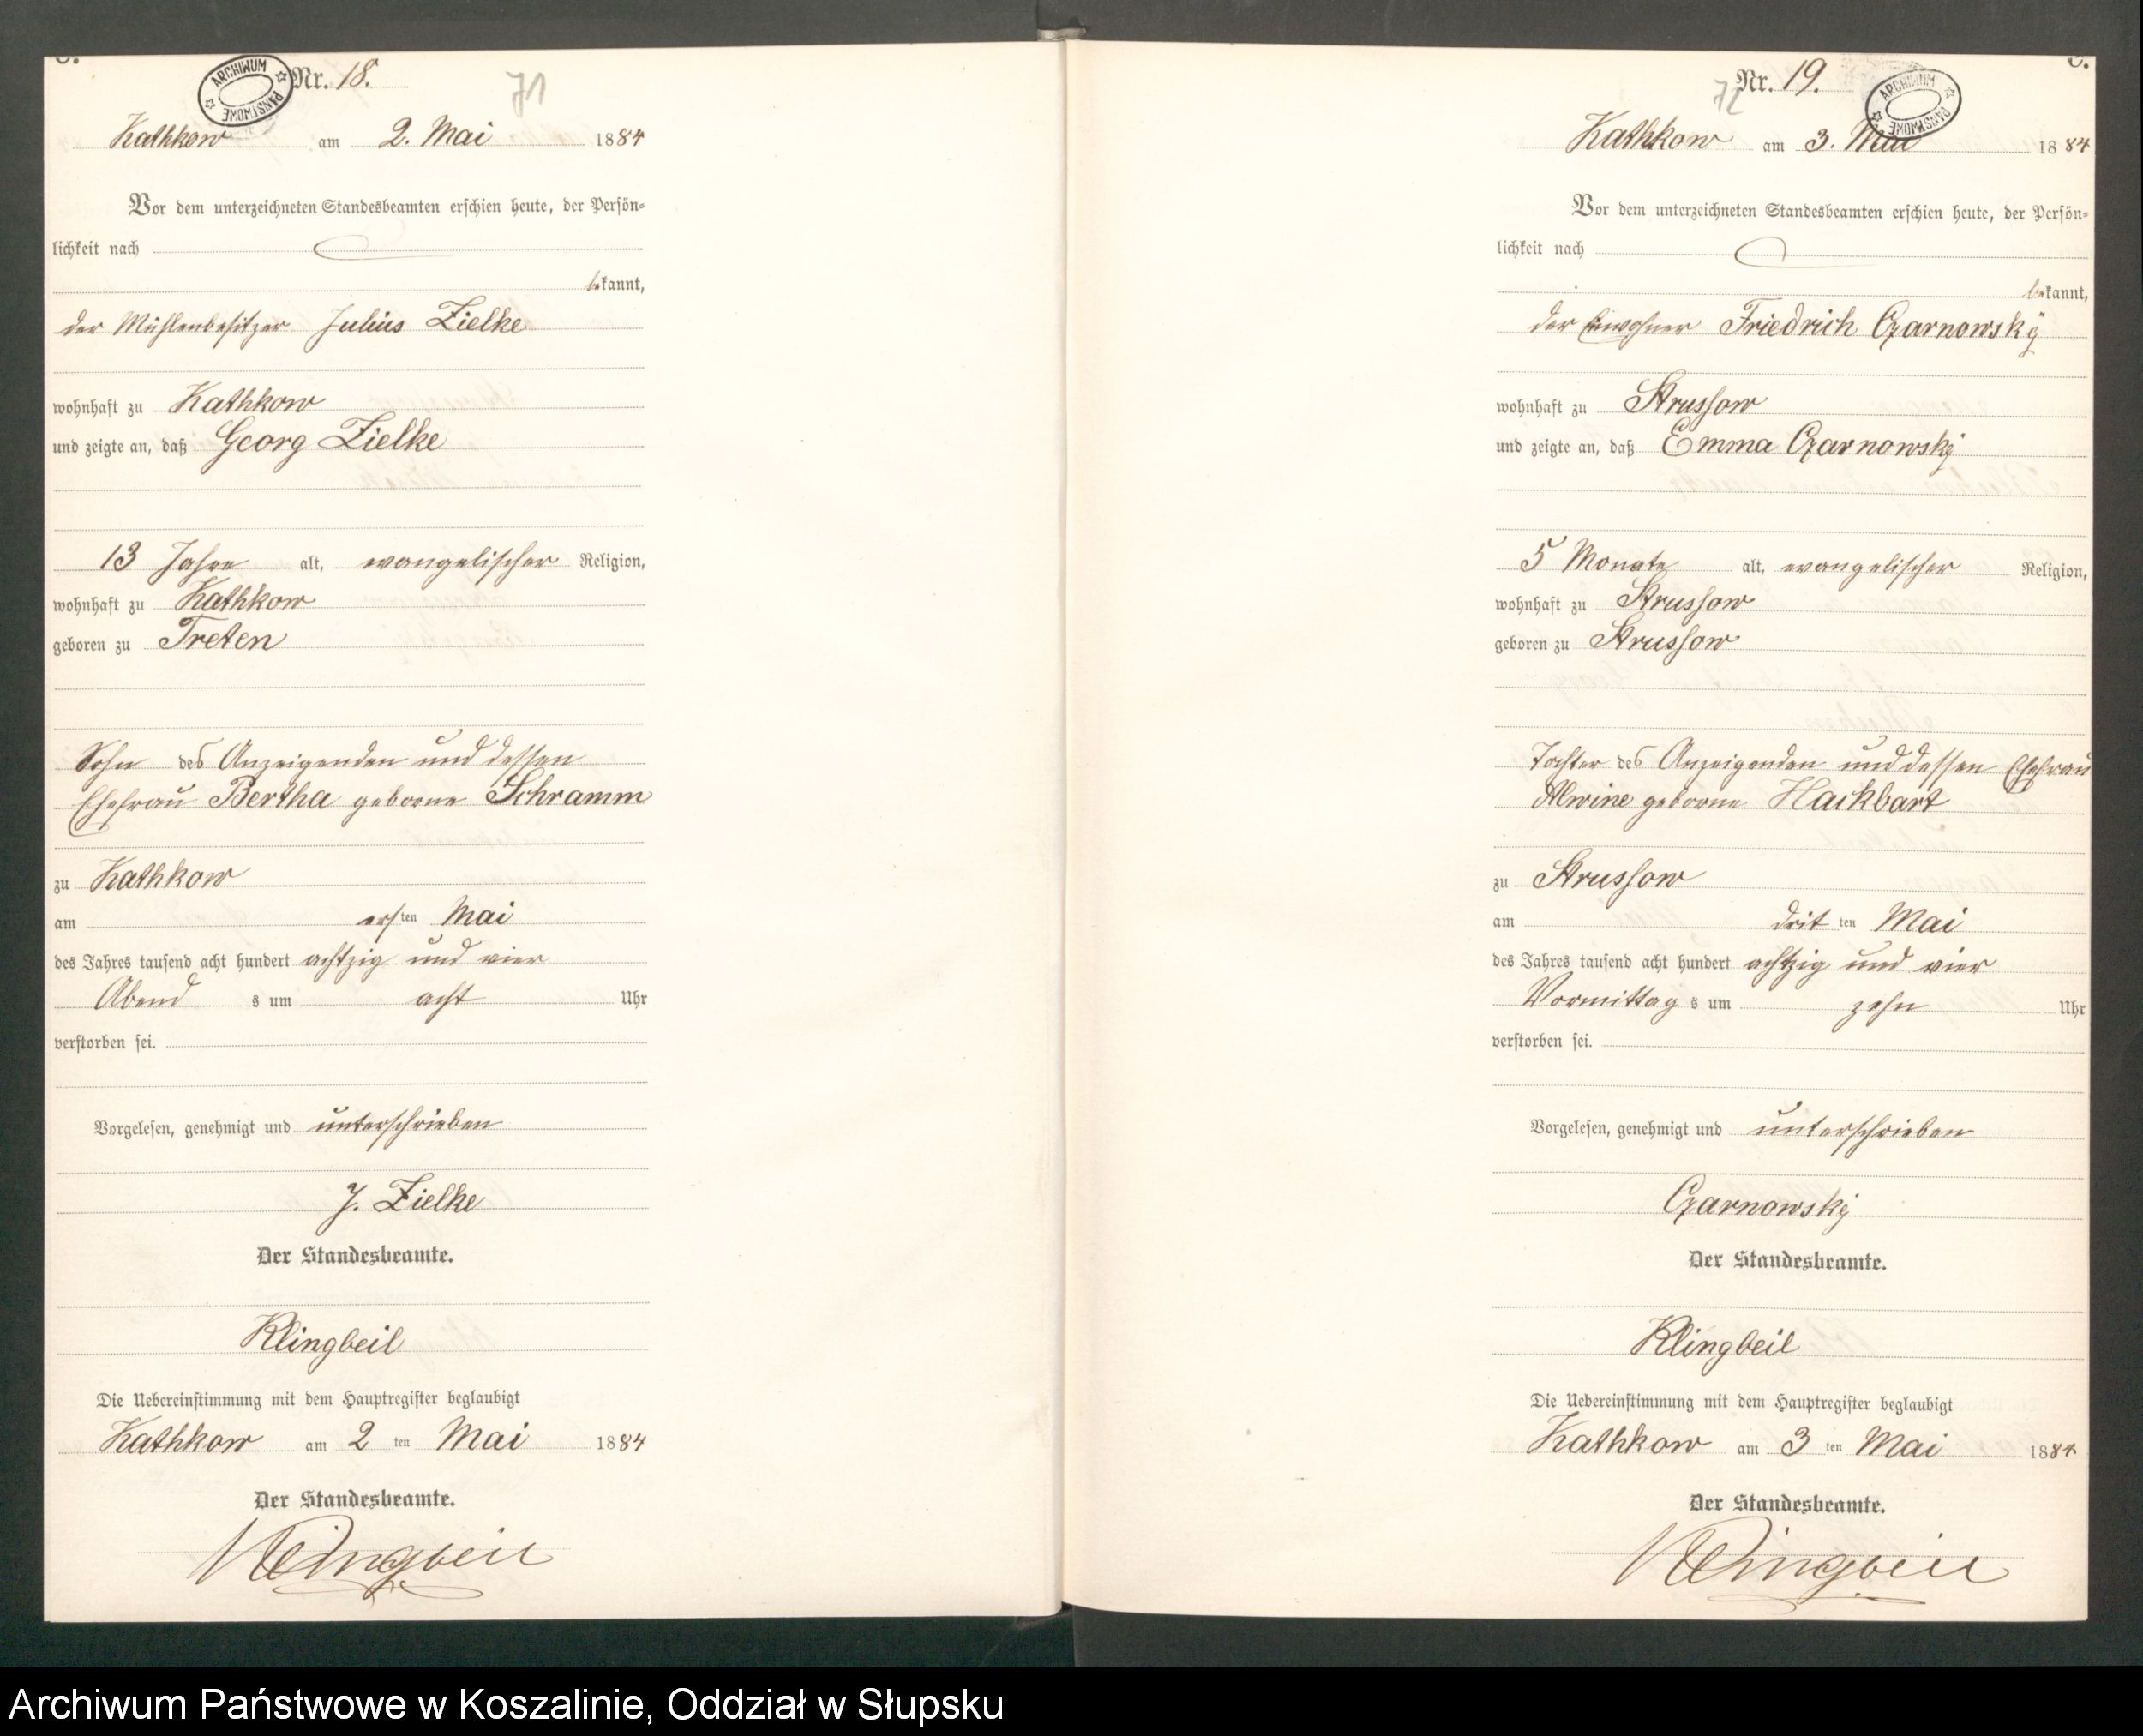 C.
Nr. 18.
71
ARCHIWUM PAŃSTWOWE
Kathkow am 2. Mai 1884
Vor dem unterzeichneten Standesbeamten erschien heute, der Persön-
lichkeit nach
bekannt,
der Mühlenbesitzer Julius Zielke
wohnhaft zu Kathkow
und zeigte an, daß Georg Zielke
13 Jahre alt, evangelischer Religion,
wohnhaft zu Kathkow
geboren zu Treten
Sohn des Anzeigenden und dessen
Ehefrau Bertha geborne Schramm
zu Kathkow
am ersten Mai
des Jahres tausend acht hundert achtzig und vier
Abends um acht Uhr
verstorben sei.
Vorgelesen, genehmigt und unterschrieben
J. Zielke
Der Standesbeamte.
Klingbeil
Die Uebereinstimmung mit dem Hauptregister beglaubigt
Kathkow am 2ten Mai 1884
Der Standesbeamte.
Klingbeil
C.
Nr. 19.
72
ARCHIWUM PAŃSTWOWE
Kathkow am 3. Mai 1884
Vor dem unterzeichneten Standesbeamten erschien heute, der Persön-
lichkeit nach
bekannt,
der Einwohner Friedrich Czarnowsky
wohnhaft zu Strussow
und zeigte an, daß Emma Czarnowsky
5 Monate alt, evangelischer Religion,
wohnhaft zu Strussow
geboren zu Strussow
Tochter des Anzeigenden und dessen Ehefrau
Alwine geborne Hackbart
zu Strussow
am dritten Mai
des Jahres tausend acht hundert achtzig und vier
Vormittags um zehn Uhr
verstorben sei.
Vorgelesen, genehmigt und unterschrieben
Czarnowsky
Der Standesbeamte.
Klingbeil
Die Uebereinstimmung mit dem Hauptregister beglaubigt
Kathkow am 3ten Mai 1884
Der Standesbeamte.
Klingbeil
Archiwum Państwowe w Koszalinie, Oddział w Słupsku